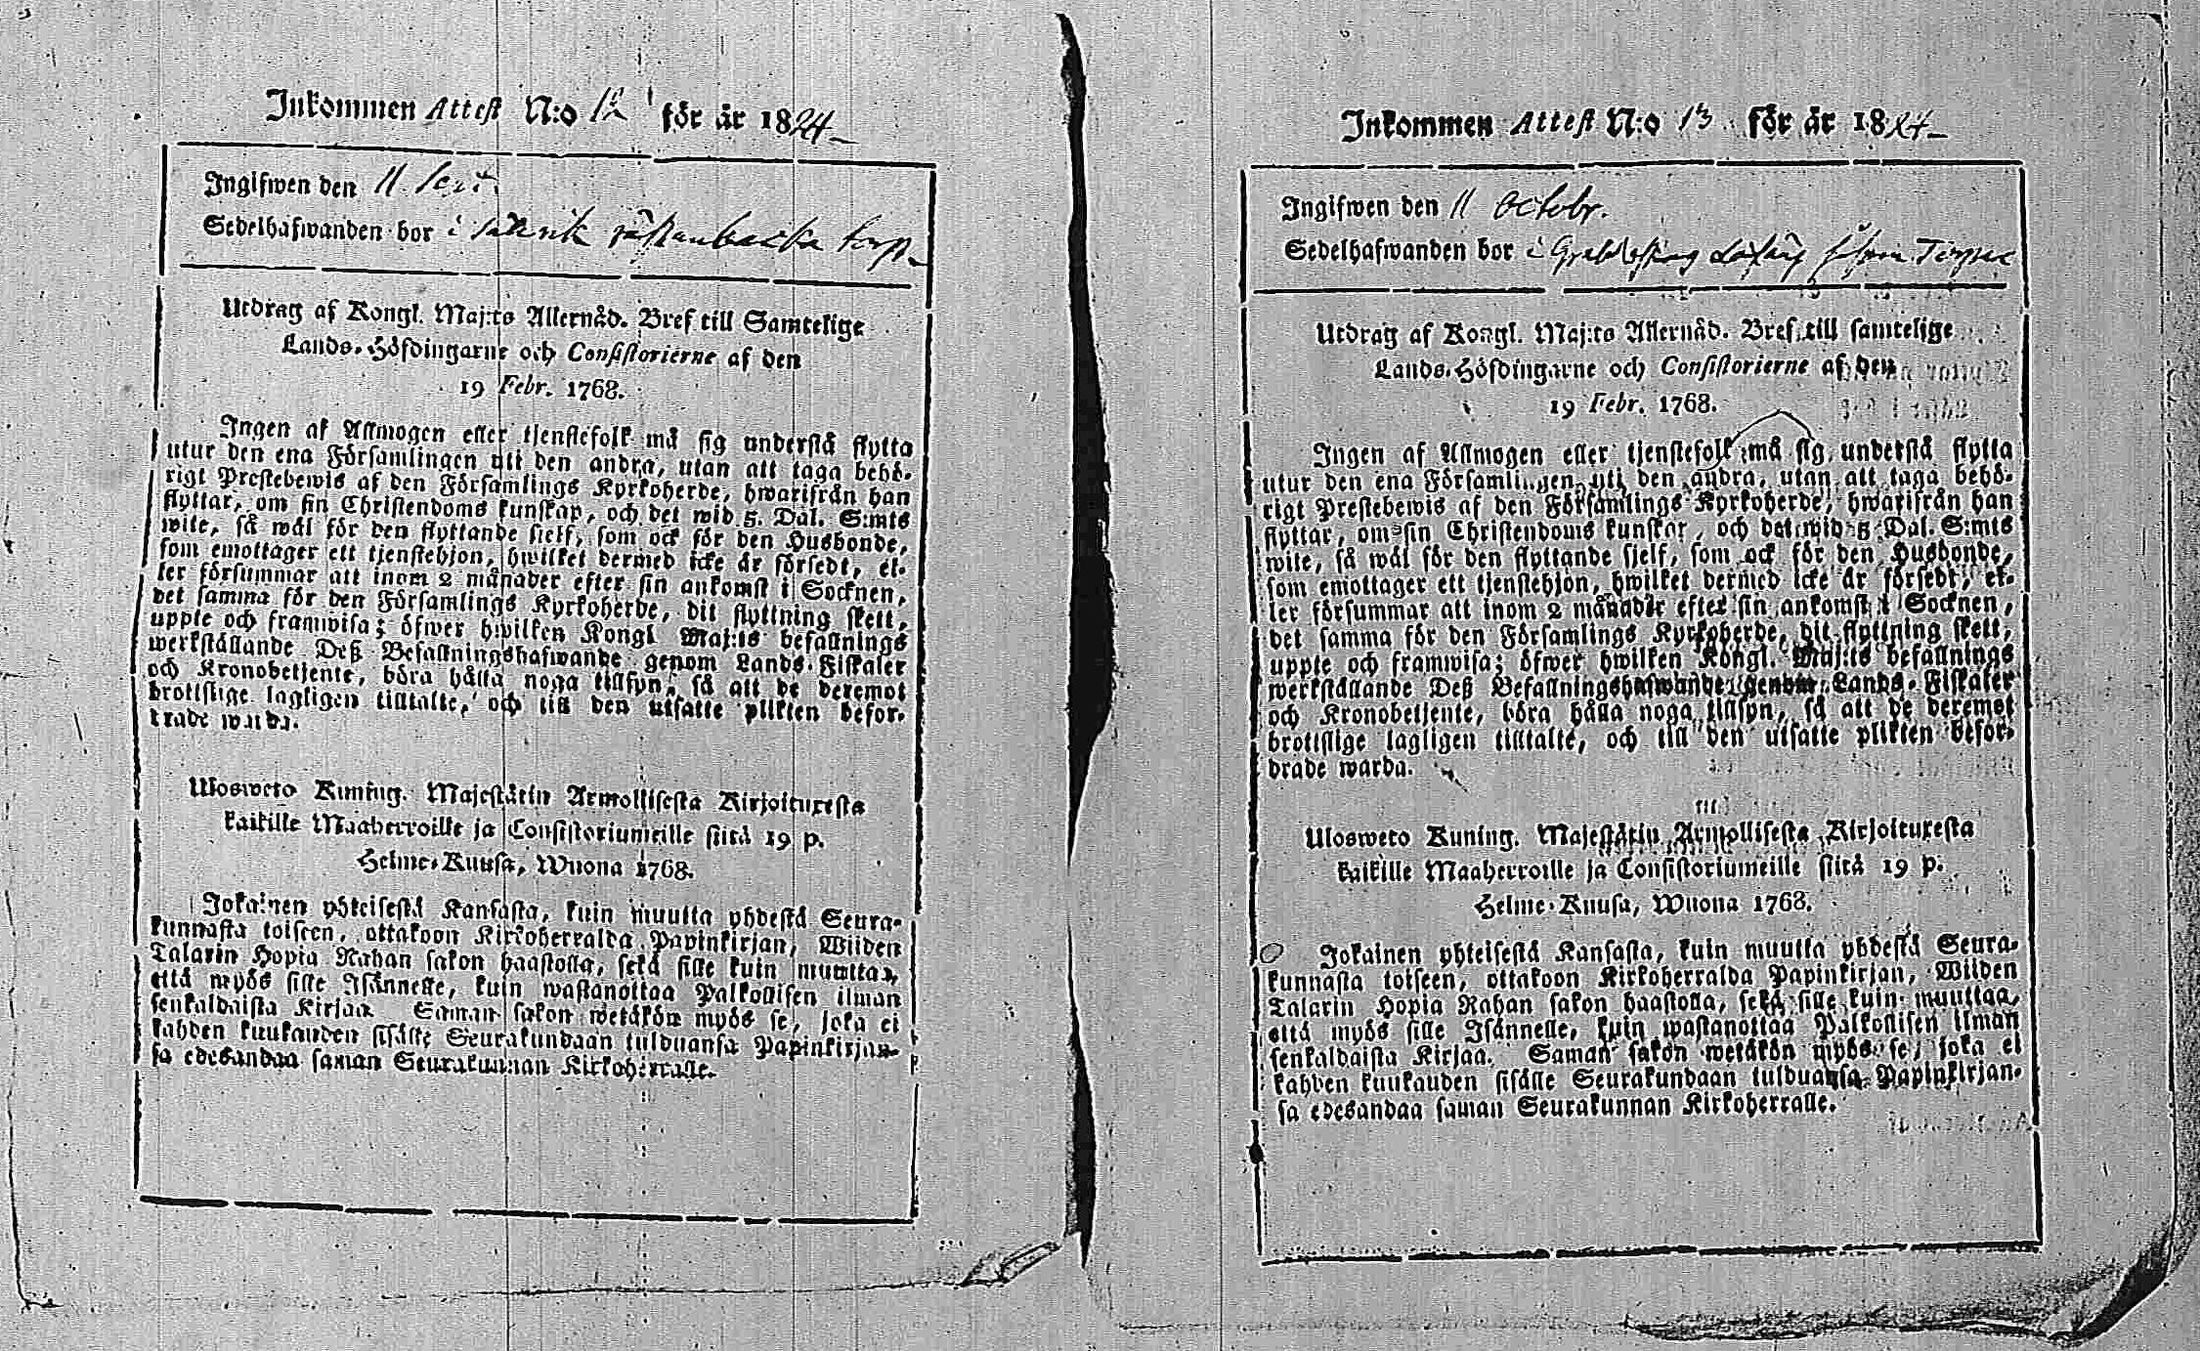 Inkommen Attest N:o 12 för år 1824
Ingifwen den 11 Sept.
Sedelhafwanden bor i
Utdrag af Kongl. Maj:ts Allernåd. Bref till Samtelige
Lands-Höfdingarne och Consistorierne af den
19 Febr. 1768.
Ingen af Allmogen eller tjenstefolk må sig understå flytta
utur den ena Församlingen uti den andra, utan att taga behö-
rigt Prestebewis af den Församlings Kyrkoherde, hwarifrån han
flyttar, om sin Christendoms kunskap, och det wid 5. Dal. S:mts
wite, så wäl för den flyttande sielf, som ock för den Husbonde,
som emottager ett tjenstehjon, hwilket dermed icke är försedt, el-
ler försummar att inom 2 månader efter sin ankomst i Socknen,
det samma för den Församlings Kyrkoherde, dit flyttning skett,
uppte och framwisa; öfwer hwilken Kongl Maj:ts befallnings
werkställande Deß Befallningshafwande genom Lands-Fiskaler
och Kronobetjente, böra hålla noga tillsyn, så att de deremot
brottslige lagligen tilltalte, och till den utsatte plikten befor-
drade warda.
Ulosweto Kuning. Majestätin Armollisesta Kirjoituxesta
kaikille Maaherroille ja Consistoriumeille siitä 19 p.
Helme-Kuusa, Wuona 1768.
Jokainen yhteisestä Kansasta, kuin muutta yhdestä Seura-
kunnasta toiseen, ottakoon Kirkoherralda Papinkirjan, Wiiden
Talarin Hopia Rahan sakon haastolla, sekä sille kuin muuttaa,
että myös sille Isännelle, kuin wastanottaa Palkollisen ilman
senkaldaista Kirjaa. Saman sakon wetäkön myös se, joka ei
kahden kuukauden sisälle Seurakundaan tulduansa Papinkirjan-
sa edesandaa saman Seurakunnan Kirkoherralle.
Inkommen Attest N:o 13 för år 1824
Ingifwen den 11 Octobr.
Sedelhafwanden bor i
Utdrag af Kongl. Maj:ts Allernåd. Bref till samtelige
Lands-Höfdingarne och Consistorierne af den
19 Febr. 1768.
Ingen af Allmogen eller tjenstefolk må sig understå flytta
utur den ena Församlingen uti den andra, utan att taga behö-
rigt Prestebewis af den Församlings Kyrkoherde, hwarifrån han
flyttar, om sin Christendoms kunskap, och det wid 5 Dal. S:mts
wite, så wäl för den flyttande sjelf, som ock för den Husbonde,
som emottager ett tjenstehjon, hwilket dermed icke är försedt, el-
ler försummar att inom 2 månader efter sin ankomst i Socknen,
det samma för den Församlings Kyrkoherde, dit flyttning skett,
uppte och framwisa; öfwer hwilken Kongl. Maj:ts befallnings
werkställande Deß Befallningshafwande genom Lands-Fiskaler
och Kronobetjente, böra hålla noga tillsyn, så att de deremot
brottslige lagligen tilltalte, och till den utsatte plikten befor-
drade warda.
Ulosweto Kuning. Majestätin Armollisesta Kirjoituxesta
kaikille Maaherroille ja Consistoriumeille siitä 19 p.
Helme-Kuusa, Wuona 1768.
Jokainen yhteisestä Kansasta, kuin muutta yhdestä Seura-
kunnasta toiseen, ottakoon Kirkoherralda Papinkirjan, Wiiden
Talarin Hopia Rahan sakon haastolla, sekä sille kuin muuttaa,
että myös sille Isännelle, kuin wastanottaa Palkollisen ilman
senkaldaista Kirjaa. Saman sakon wetäkön myös se, joka ei
kahden kuukauden sisälle Seurakundaan tulduansa Papinkirjan-
sa edesandaa saman Seurakunnan Kirkoherralle.